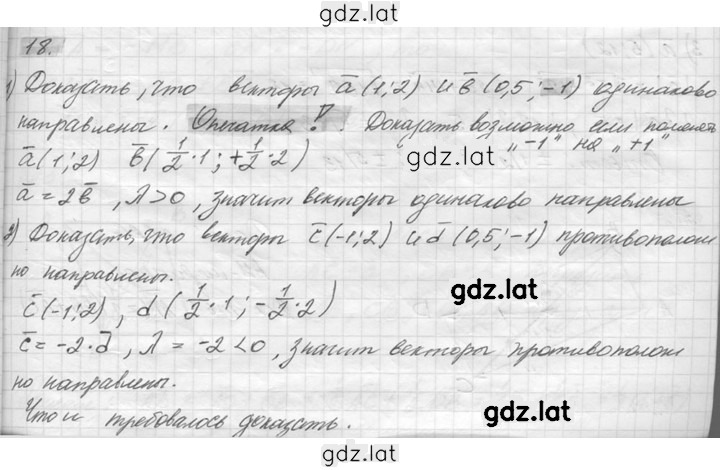 gdz.lat
18.
1) Доказать, что векторы a̅(1;2) и b̅(0,5;-1) одинаково
направлены. Опечатка! Доказать возможно если поменять
a̅(1;2) b̅(1/2·1;+1/2·2) „-1" на „+1"
a̅=2b̅, λ>0, значит векторы одинаково направлены
2) Доказать, что векторы c̅(-1;2) и d̅(0,5;-1) противополож
но направлены.
gdz.lat
c̅(-1;2), d(1/2·1;-1/2·2)
c̅=-2·d̅, λ=-2<0, значит векторы противополож
но направлены.
Что и требовалось доказать.
gdz.lat
gdz.lat